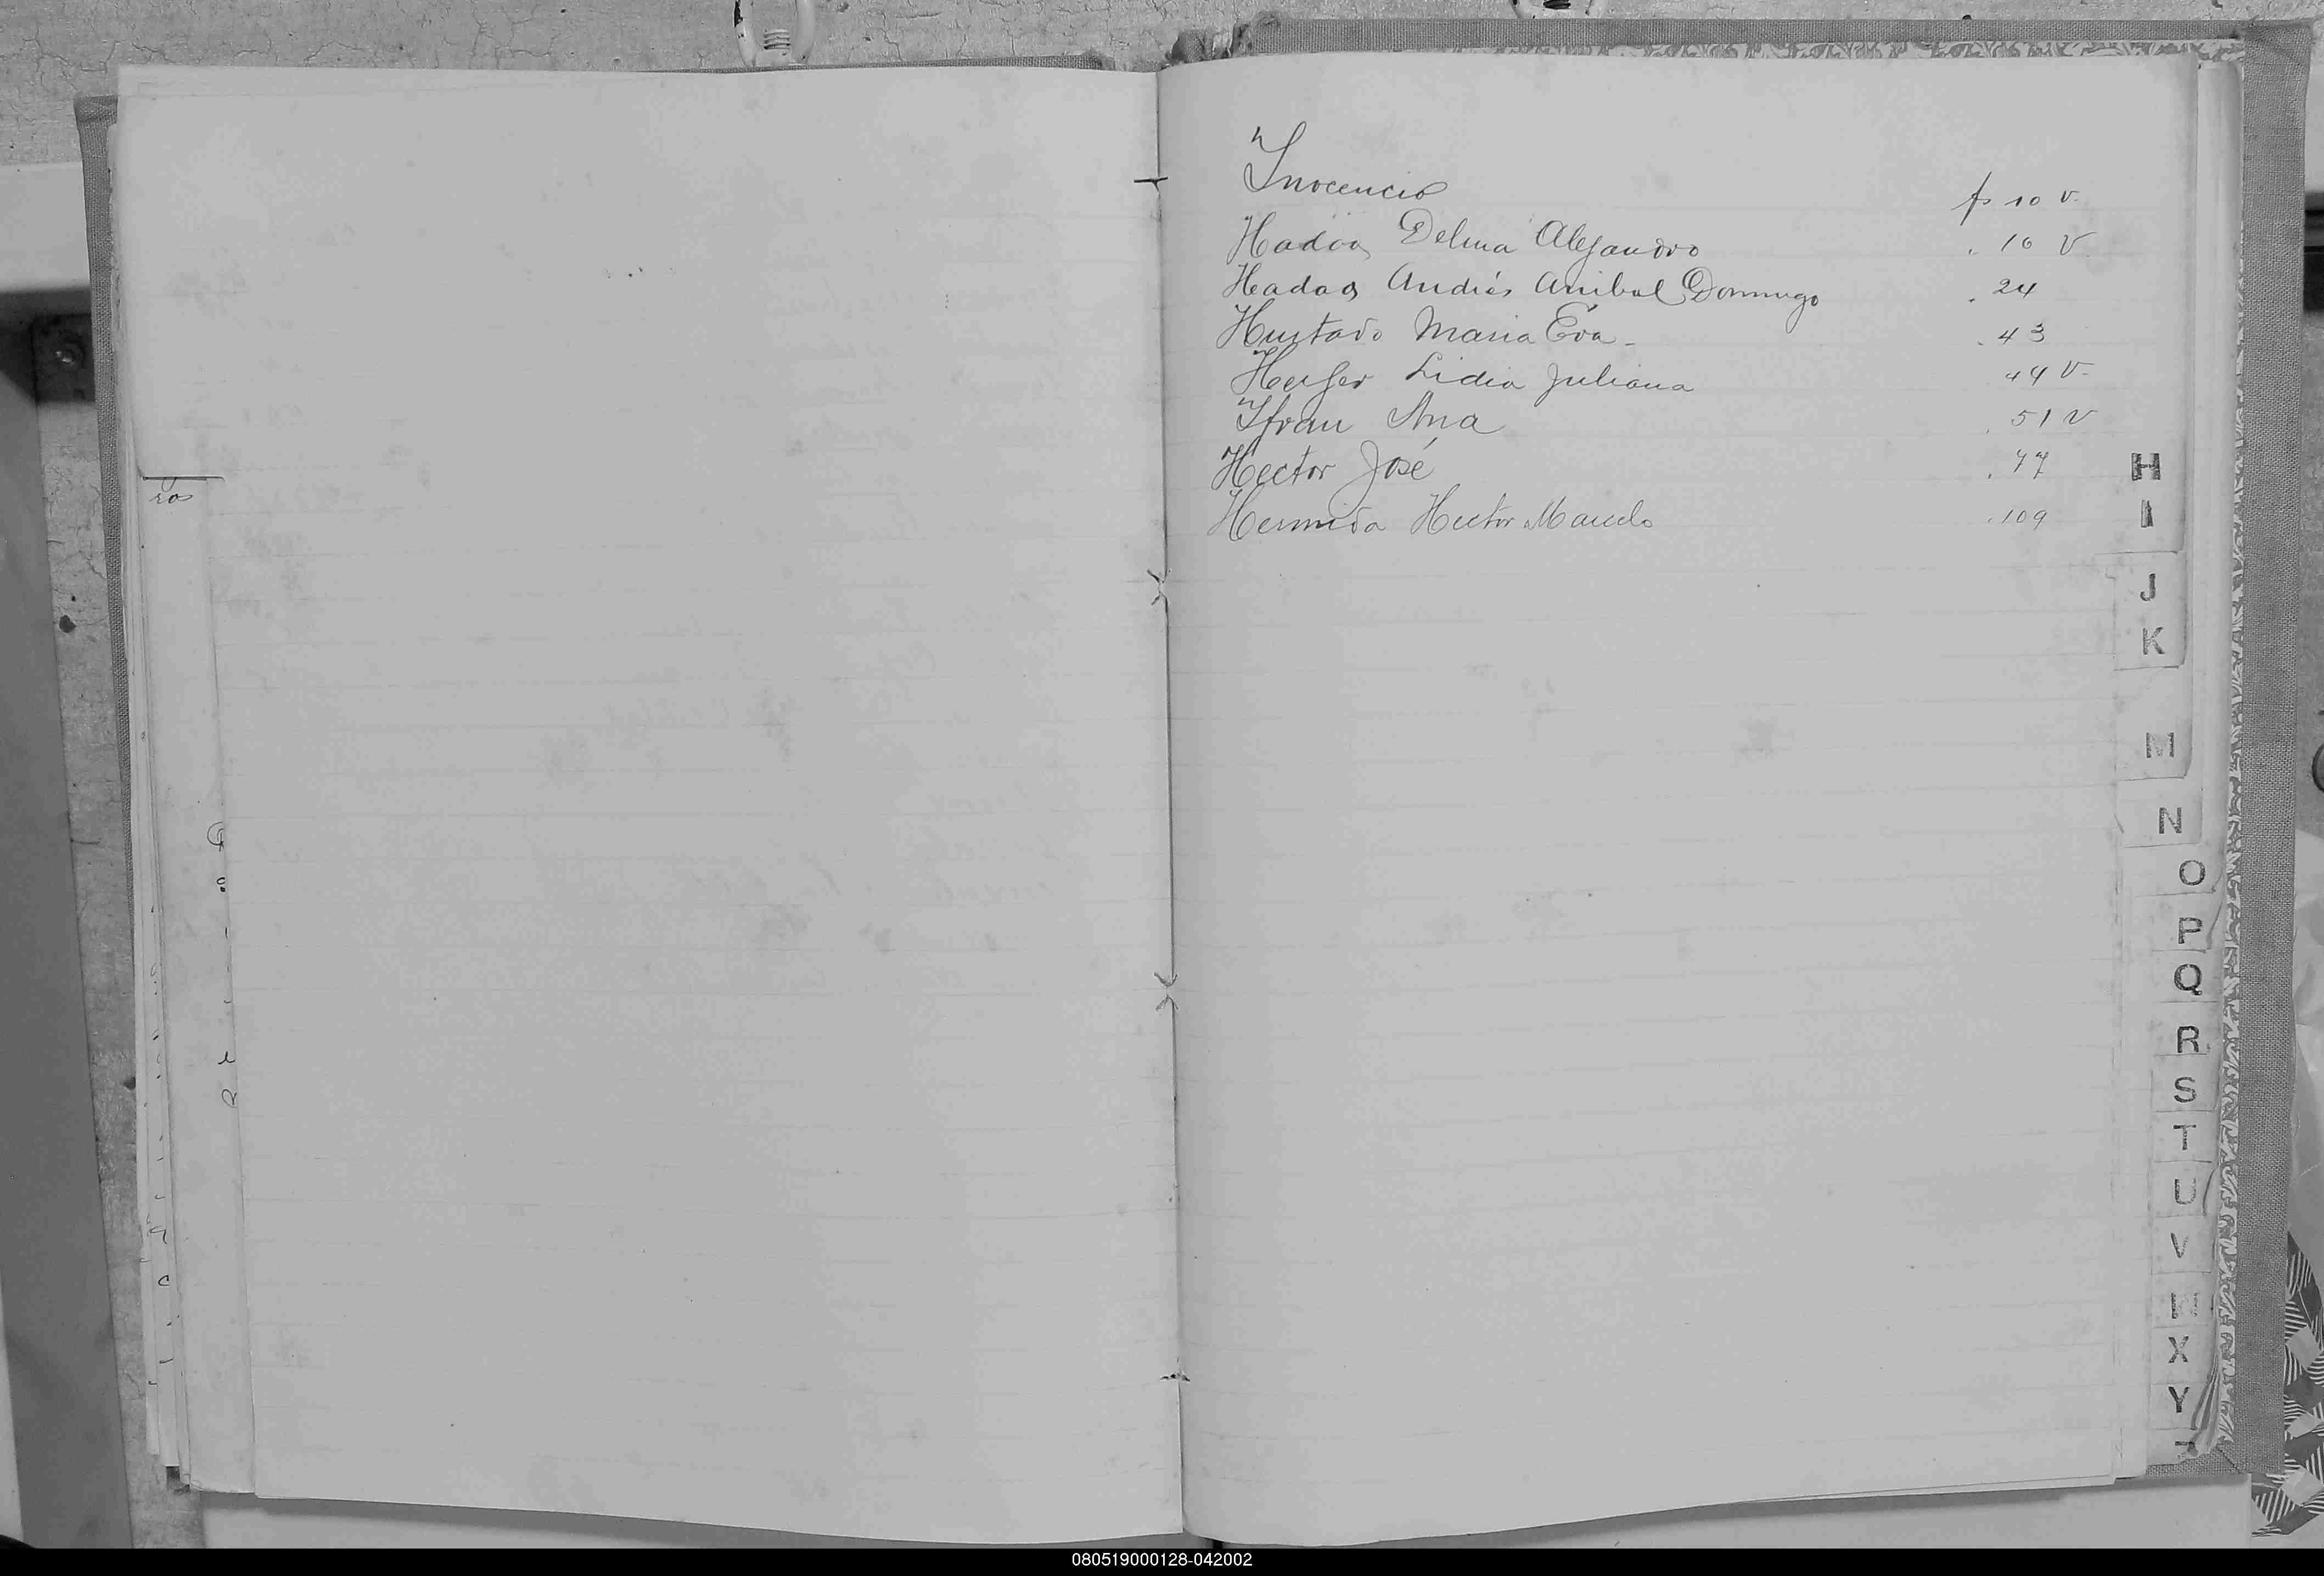 Inocencio fs 10 v.
Hadad Delma Alejandro . 16 v.
Hadad Andrés Anibal Domingo . 24
Hurtado Maria Eva - . 43
Lidia Juliana 44 v.
Ifran Ana . 51 v
Hector José . 77
Hermida Hector Marcelo . 109
ros
H
I
J
K
M
N
O
P
Q
R
S
T
U
V
X
Y
080519000128-042002